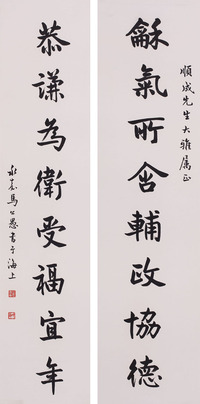 順成先生大雅属正
龢氣所舍輔政協德
恭謙為衛受福宜年
永嘉馬公愚書于海上